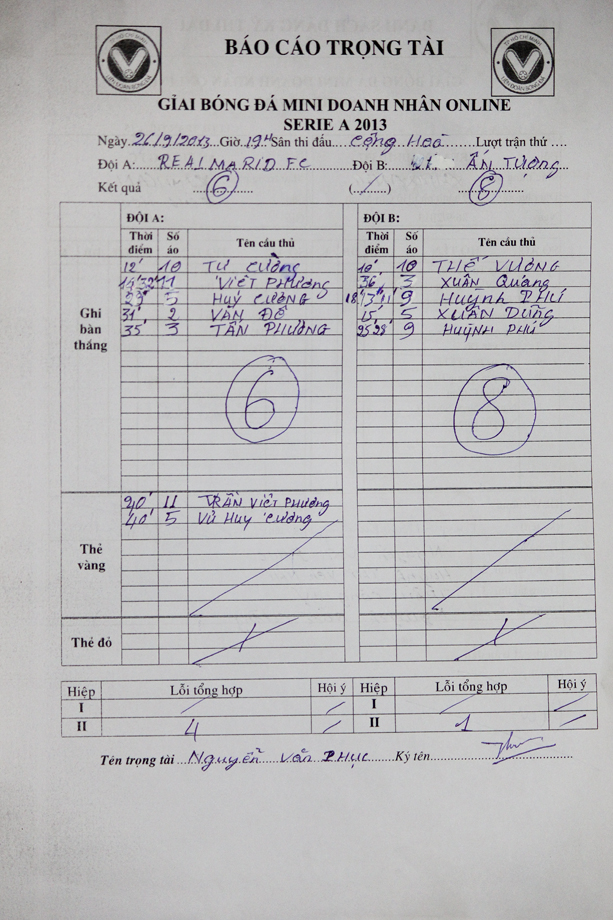 BÁO CÁO TRỌNG TÀI
GIẢI BÓNG ĐÁ MINI DOANH NHÂN ONLINE
SERIE A 2013
Ngày 26/9/2013 Giờ 19H Sân thi đấu Cộng Hoà Lượt trận thứ ....
Đội A: REAL MARID FC Đội B: ẤN TƯỢNG
Kết quả 6 (.../...) 8
ĐỘI A: ĐỘI B:
Thời điểm Số áo Tên cầu thủ Thời điểm Số áo Tên cầu thủ
Ghi bàn thắng
12' 10 TƯ CƯỜNG 10' 10 THẾ VƯƠNG
11 VIẾT PHƯƠNG 36' 3 XUÂN QUANG
5 HUY CƯỜNG 9 HUỲNH PHÚ
31' 2 VĂN ĐÔ 15' 5 XUÂN DŨNG
35' 3 TẤN PHƯƠNG 25' 28' 9 HUỲNH PHÚ
6 8
Thẻ vàng
20' 11 TRẦN VIẾT PHƯƠNG
40' 5 VŨ HUY CƯỜNG
Thẻ đỏ
Hiệp Lỗi tổng hợp Hội ý Hiệp Lỗi tổng hợp Hội ý
I / / I / /
II 4 / II 1 /
Tên trọng tài Nguyễn Văn Phục Ký tên